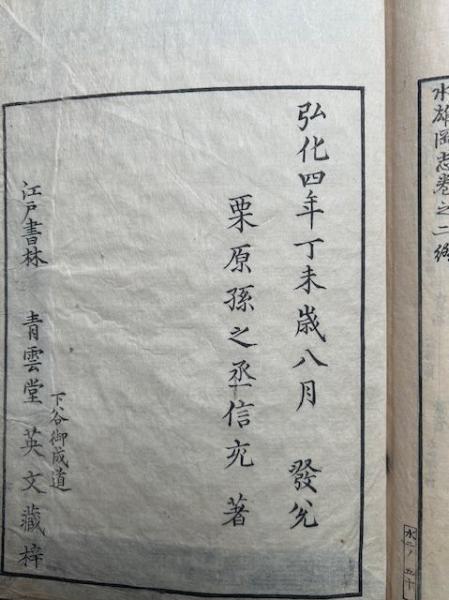 水雄岡志巻之二終
水二ノ五十
弘化四年丁未歳八月 發兌
栗原孫之丞信充 著
下谷御成道
江戸書林 青雲堂 英文藏梓